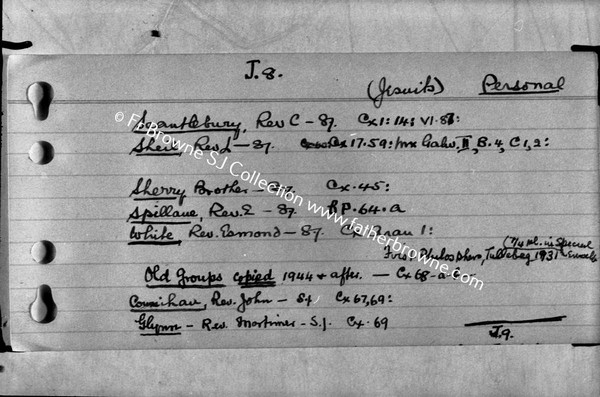 J.8.
(Jesuits) Personal
Scantlebury, Rev C - 87. Cx1: 14: VI. 87:
Sheil, Rev L - 87. Cx 17.59: mx Galw. II, B.4, C1,2:
Sherry Brother - 87. Cx.45:
Spillane, Rev. E - 87. RP.64.a
White, Rev. Esmond - 87. Cx 1:
(7/4 pl. in Special
First Philosophers, Tullabeg 1931
Old Groups copied 1944 & after. - Cx 68-a
Counihan, Rev. John - S.J. Cx 67,69:
Glynn - Rev. Mortimer - S.J. Cx.69
J.9.
© Fr Browne SJ Collection www.fatherbrowne.com